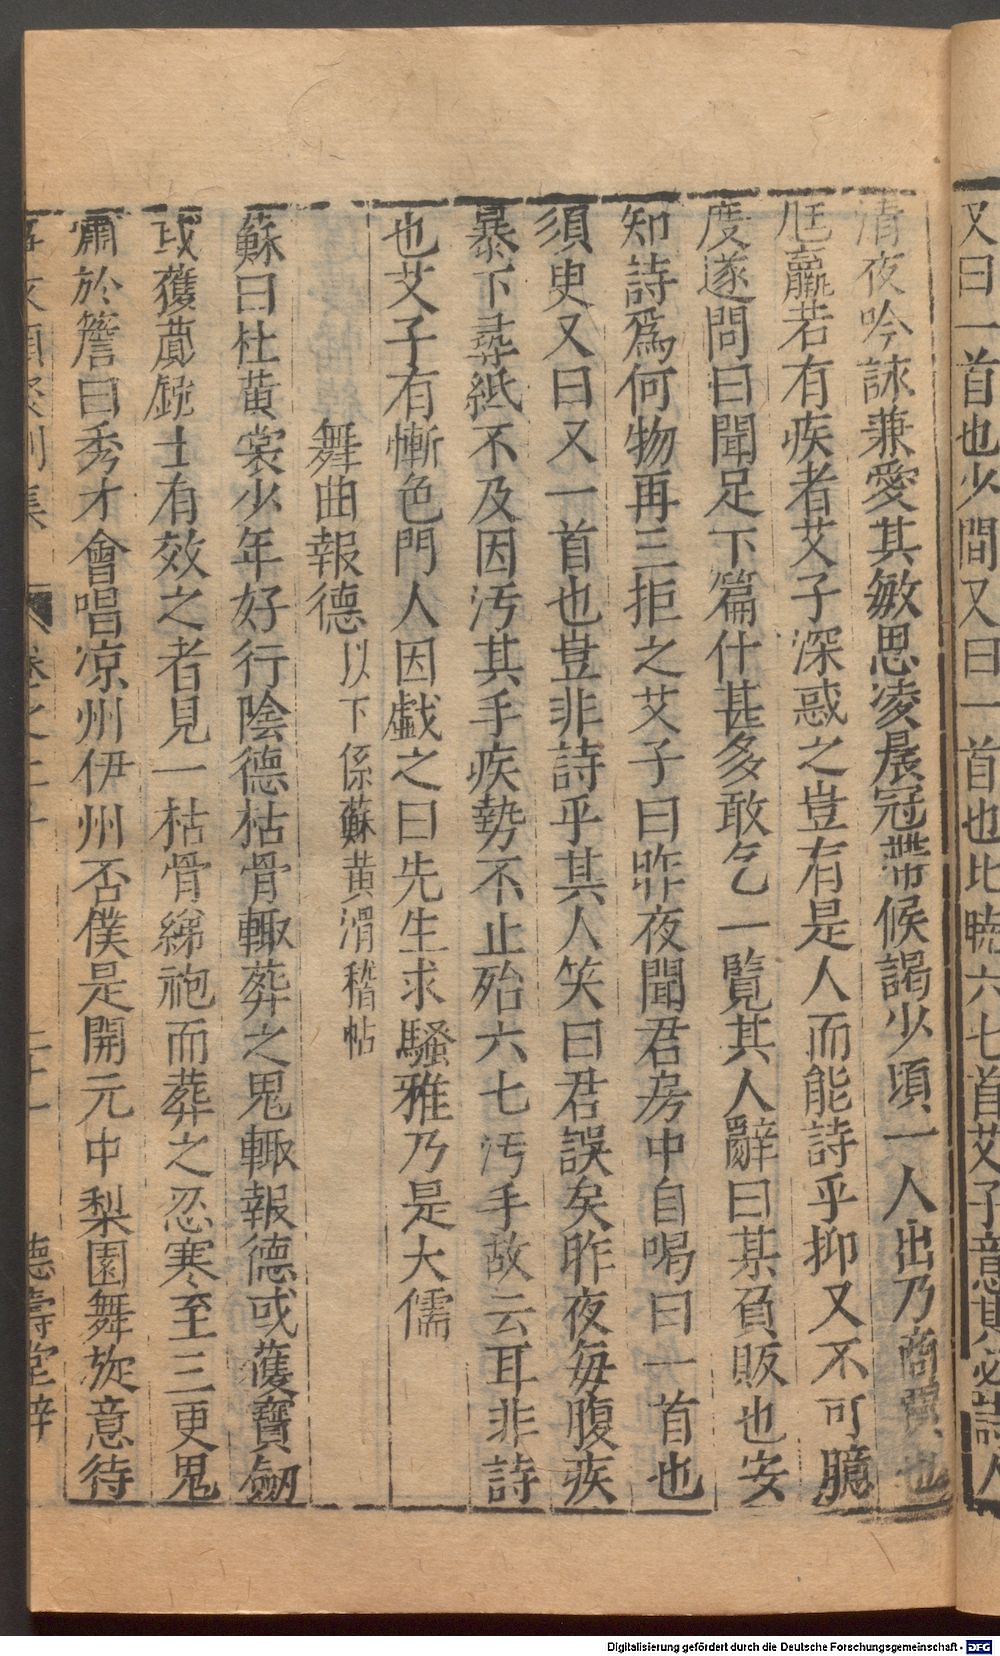 又曰一首也少間又曰一首也比曉六七首艾子意其必詩人
清夜吟詠兼愛其敏思凌晨冠帶候謁少頃一人出乃商賈也
尪羸若有疾者艾子深惑之豈有是人而能詩乎抑又不可臆
度遂問曰聞足下篇什甚多敢乞一覽其人辭曰某負販也安
知詩爲何物再三拒之艾子曰昨夜聞君房中自喝曰一首也
須臾又曰又一首也豈非詩乎其人笑曰君誤矣昨夜每腹疾
暴下尋紙不及因汚其手疾勢不止殆六七汚手故云耳非詩
也艾子有慚色門人因戲之曰先生求騷雅乃是大儒
舞曲報德以下係蘇黃滑稽帖
蘇曰杜黃裳少年好行陰德枯骨輙葬之鬼輙報德或獲寶劔
或獲藚銳士有效之者見一枯骨綈袍而葬之忍寒至三更鬼
嘯於簷曰秀才會唱凉州伊州否僕是開元中梨園舞旋意待
卷之二十 二十一 德壽堂梓
Digitalisierung gefördert durch die Deutsche Forschungsgemeinschaft - DFG